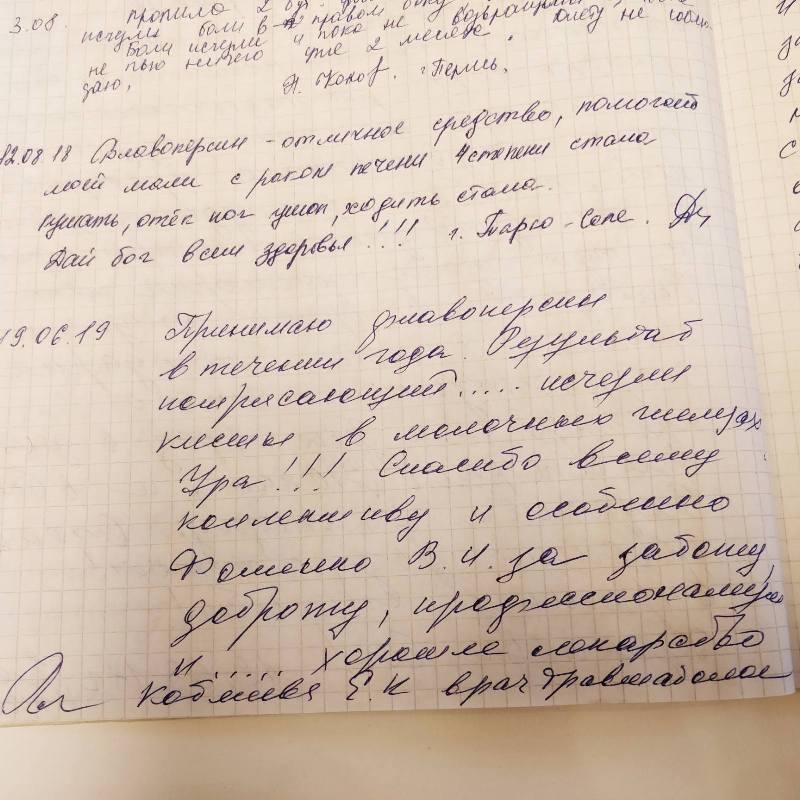 3.08. пропила 2
исчезли боли в правом боку
Боли исчезли и пока не возвращ
не пью ничего уже 2 месяца. Диету не соблю-
даю. г. Пермь.
12.08.18 Влавоперсин - отличное средство, помогает
моей маме с раком печени 4 степени стала
кушать, отёк ног ушол, ходить стала.
Дай бог всем здоровья!!! г. Тарко-Сале.
19.06.19 Принимаю флавоперсин
в течении года. Результат
потрясающий..... исчезли
кисты в молочных железах
Ура!!! Спасибо всему
коллективу и особенно
Фоменко В.И. за заботу,
доброту, профессионализм
и...... хорошее лекарство
Е.К врач травматолог